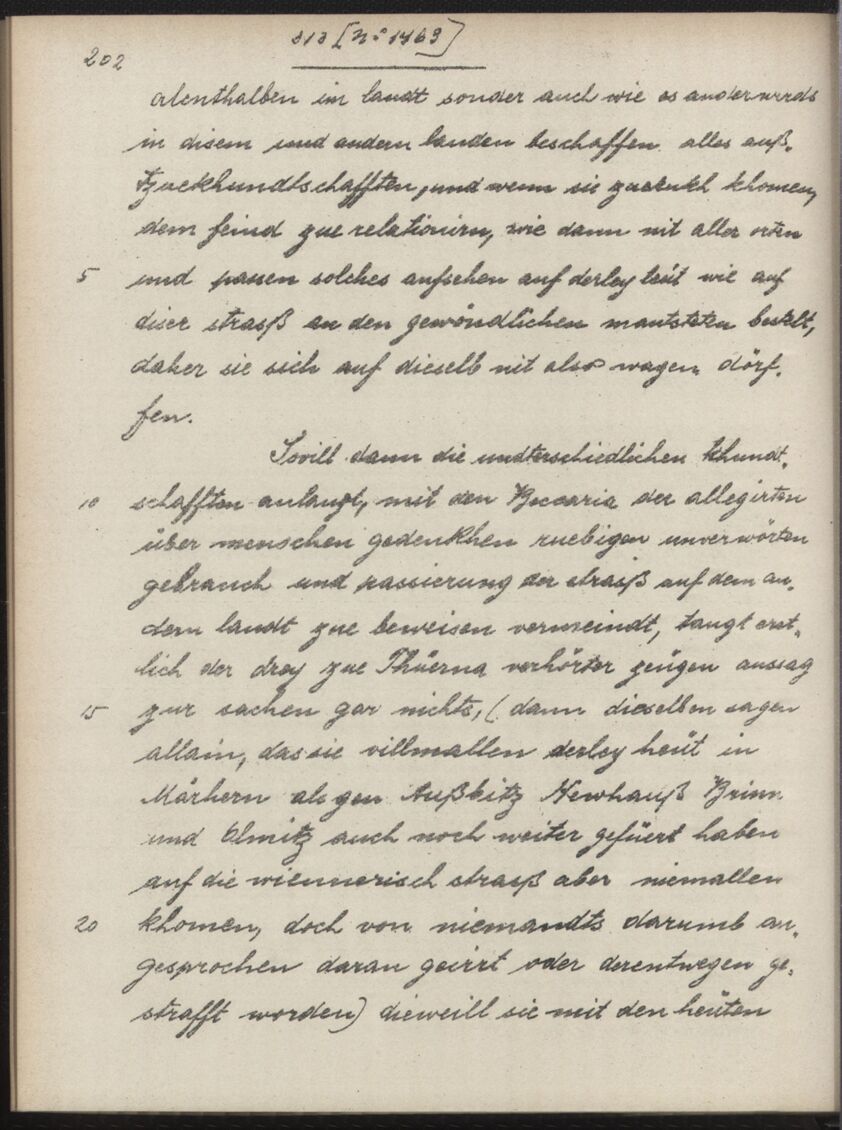 202
813 [N° 1469]
alenthalben im landt sonder auch wie es anderwerds
in disem und andern landen beschaffen alles auß-
khundtschafften, und wenn sie zuerukh khomen,
dem feind zue relationirn, wie dann nit aller orten
5 und passen solches aufsehen auf derley leüt wie auf
diser strasß an den gewöndlichen mautsteten bestelt,
daher sie sich auf dieselb nit also wagen dörf-
fen.
Sovill dann die undterschiedlichen khundt-
10 schafften anlangt, mit den Beccaria der allegirten
über menschen gedenkhen ruebigen unverwörten
gebrauch und passierung der strasß auf dem an-
dern landt zue beweisen vermeindt, taugt erst-
lich der drey zue Thüerna verhörter zeügen aussag
15 zur sachen gar nichts, (dann dieselben sagen
allain, das sie villmallen derley heüt in
Märhern als gen Außbitz Newhauß Brinn
und Olmitz auch noch weiter gefüert haben
auf die wiennerisch strasß aber niemallen
20 khomen, doch von niemandts darumb an-
gesprochen daran geirrt oder derentwegen ge-
strafft worden) dieweill sie mit den heüten